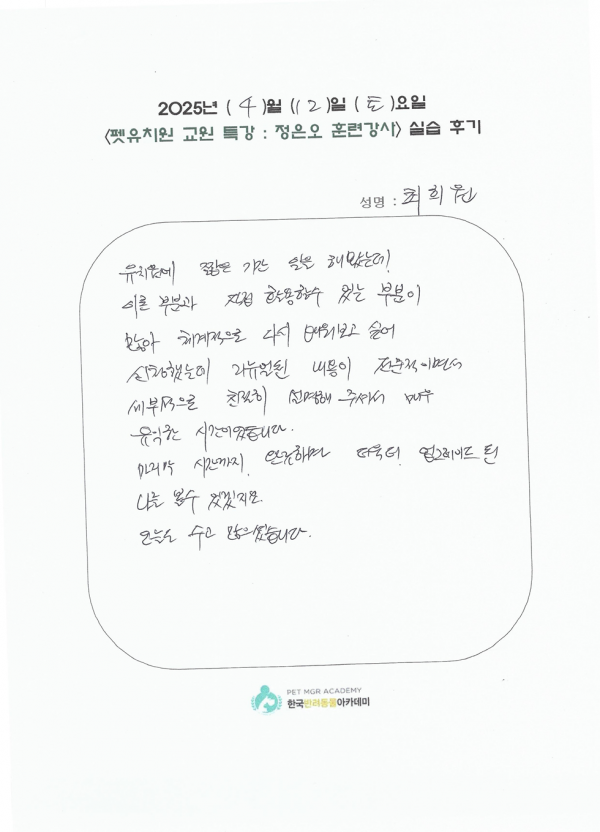 2025년 (4)월 (12)일 (토)요일
<펫유치원 교원 특강 : 정은오 훈련강사> 실습 후기
성명 : 최희원
유치원에 짧은 기간 일을 해봤는데!
이론 부분과 직접 활용할수 있는 부분이
많아 체계적으로 다시 배워보고 싶어
신청했는데 리뉴얼된 내용이 전문적이면서
세부적으로 친절히 설명해 주셔서 매우
유익한 시간이었습니다.
마지막 시간까지 더욱더 업그레이드 된
나를 볼수 있겠지요.
오늘도 수고 많으셨습니다.
PET MGR ACADEMY
한국반려동물아카데미